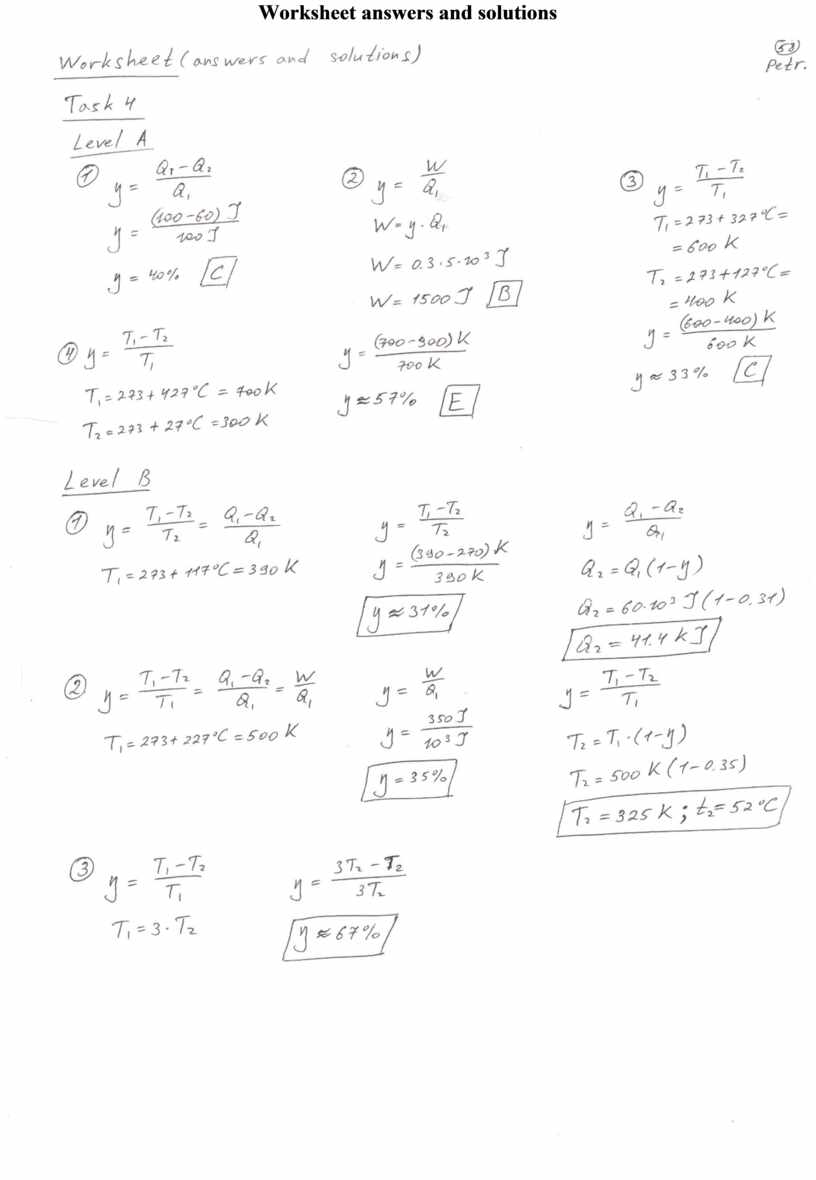 Worksheet answers and solutions
Worksheet (answers and solutions)
58
Petr.
Task 4
Level A
① y = (Q₁ - Q₂) / Q₁
y = (100-60) J / 100 J
y = 40% C
② y = W / Q₁
W = y · Q₁
W = 0.3 · 5 · 10³ J
W = 1500 J B
③ y = (T₁ - T₂) / T₁
T₁ = 273 + 327°C =
= 600 K
T₂ = 273 + 127°C =
= 400 K
y = (600-400) K / 600 K
y ≈ 33% C
④ y = (T₁ - T₂) / T₁
T₁ = 273 + 427°C = 700 K
T₂ = 273 + 27°C = 300 K
y = (700-300) K / 700 K
y ≈ 57% E
Level B
① y = (T₁ - T₂) / T₂ = (Q₁ - Q₂) / Q₁
T₁ = 273 + 117°C = 390 K
y = (T₁ - T₂) / T₂
y = (390-270) K / 390 K
y ≈ 31%
y = (Q₁ - Q₂) / Q₁
Q₂ = Q₁ (1-y)
Q₂ = 60·10³ J (1-0.31)
Q₂ = 41.4 kJ
② y = (T₁ - T₂) / T₁ = (Q₁ - Q₂) / Q₁ = W / Q₁
T₁ = 273 + 227°C = 500 K
y = W / Q₁
y = 350 J / 10³ J
y = 35%
y = (T₁ - T₂) / T₁
T₂ = T₁ · (1-y)
T₂ = 500 K (1-0.35)
T₂ = 325 K ; t₂ = 52°C
③ y = (T₁ - T₂) / T₁
T₁ = 3 · T₂
y = (3T₂ - T₂) / 3T₂
y ≈ 67%